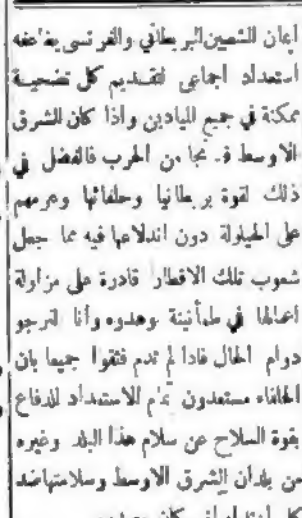 ايمان الشعبين البريطاني والفرنسي يضاعفه
استعداد اجماعي لتقديم كل تضحية
ممكنة في جميع الميادين واذا كان الشرق
الاوسط قد نجا من الحرب فالفضل في
ذلك لقوة بريطانيا وحلفائها وعزمهم
على الحيلولة دون اندلاعها فيه مما جعل
شعوب تلك الاقطار قادرة على مزاولة
اعمالها في طمأنينة وهدوء وأنا لنرجو
دوام الحال فاذا لم تدم فثقوا جميعا بان
الحلفاء مستعدون تمام الاستعداد للدفاع
بقوة السلاح عن سلام هذا البلد وغيره
من بلدان الشرق الاوسط وسلامتها ضد
كل اعتداء